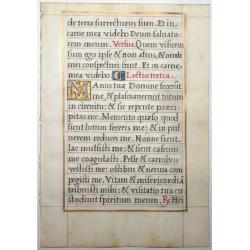 de terra surrecturus sum. Et in
carne mea videbo Deum salvato
rem meum. Versus. Quem visurus
sum ego ipse & non alius, & oculi
mei conspecturi sunt. Et in carne
mea videbo. Lectio tertia.
Manus tuæ Domine fecerūt
me, & plasmaverunt totum
in circuitu; & sic repente præci
pitas me. Memento quæso quod
sicut lutum feceris me; & in pul
verem reduces me. Nonne sicut
lac mulsisti me; & sicut caseum
me coagulasti. Pelle & carnibus
vestisti me: ossibus & nervis com
pegisti me. Vitam & misericordiā
tribuisti mihi; & visitatio tua cu
stodivit spiritum meum. ℟. Hei